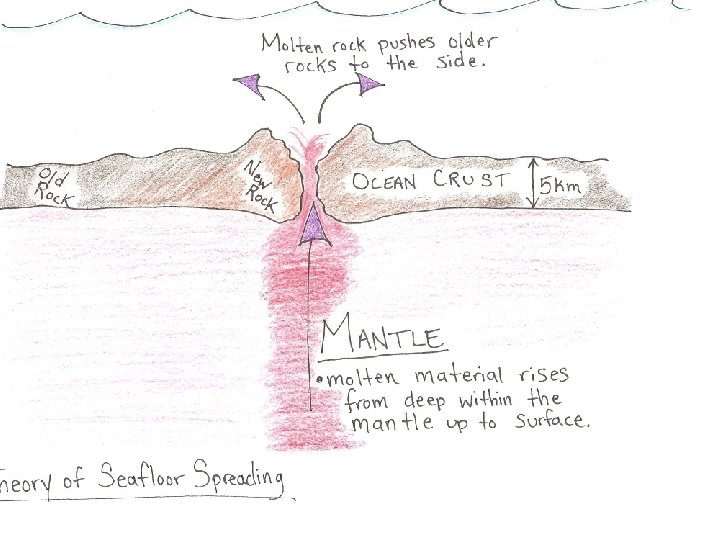 Molten rock pushes older
rocks to the side.
Old
Rock
New
Rock
OCEAN CRUST
5km
MANTLE
• molten material rises
from deep within the
mantle up to surface.
heory of Seafloor Spreading